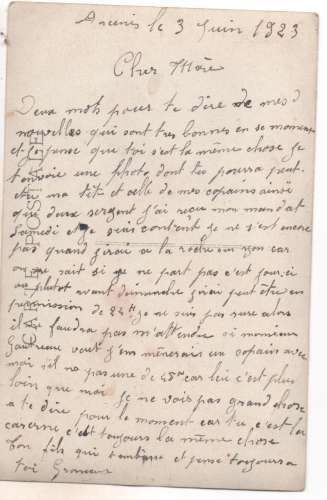 Ancenis le 3 Juin 1923
Cher Mère
Deux mots pour te dire de mes
nouvelles qui sont tres bonnes en se moment
et je pense que toi s'est la même chose je
t'envoie une photo dont tu pourra peut
etre ma tit et celle de mes copains ainsi
que deux sergent j'ai reçu mon mandat
samedi et je suis content je ne s'est encore
pas quand j'irai a la roche sur yon car
on ne sait si je ne part pas c'est jour ci
ou plutot avant dimanche j'irai peut être en
permission de 24H je ne suis pas sure alors
il ne faudra pas m'attendre si monsieur
veut j'en mènerais un copain avec
moi s'il na pas une de 48H car lui c'est plus
loin que moi je ne vois pas grand chose
a te dire pour le moment car tu c'est la
caserne c'est toujours la même chose
ton fils qui t'embrasse et pense toujours a
toi
CARTE POSTALE